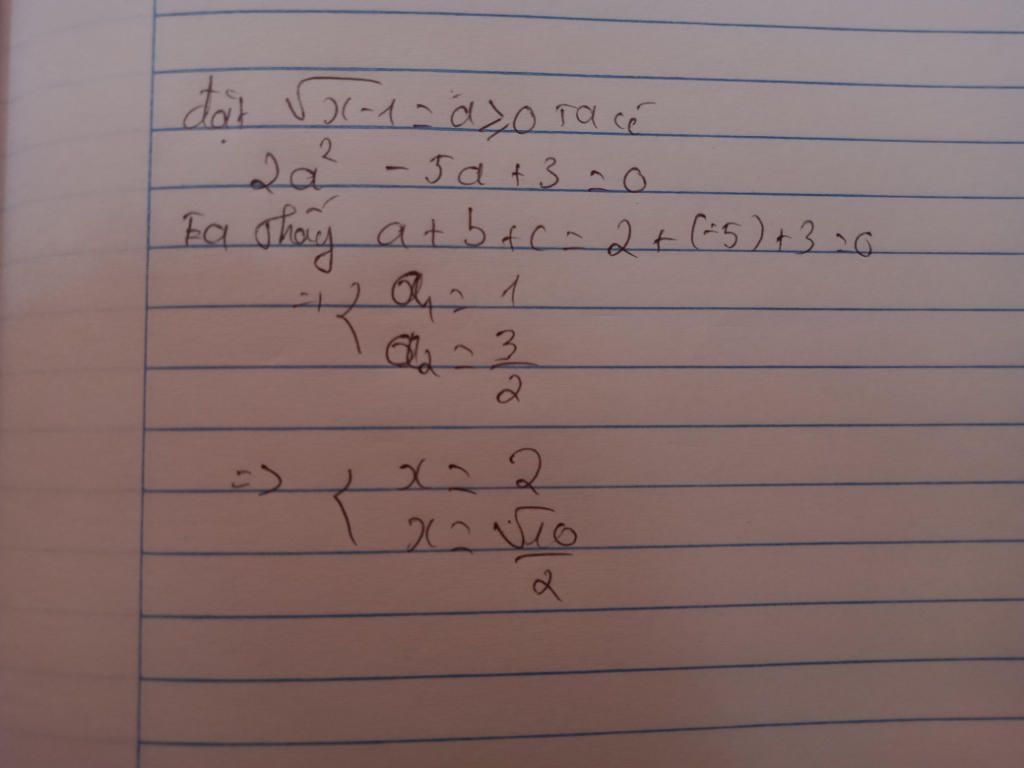 đặt √x-1 = a ≥ 0 ta có
2a² - 5a + 3 = 0
Ta thấy a + b + c = 2 + (-5) + 3 = 0
=> { a₁ = 1
a₂ = 3/2
=> { x = 2
x = √10/2